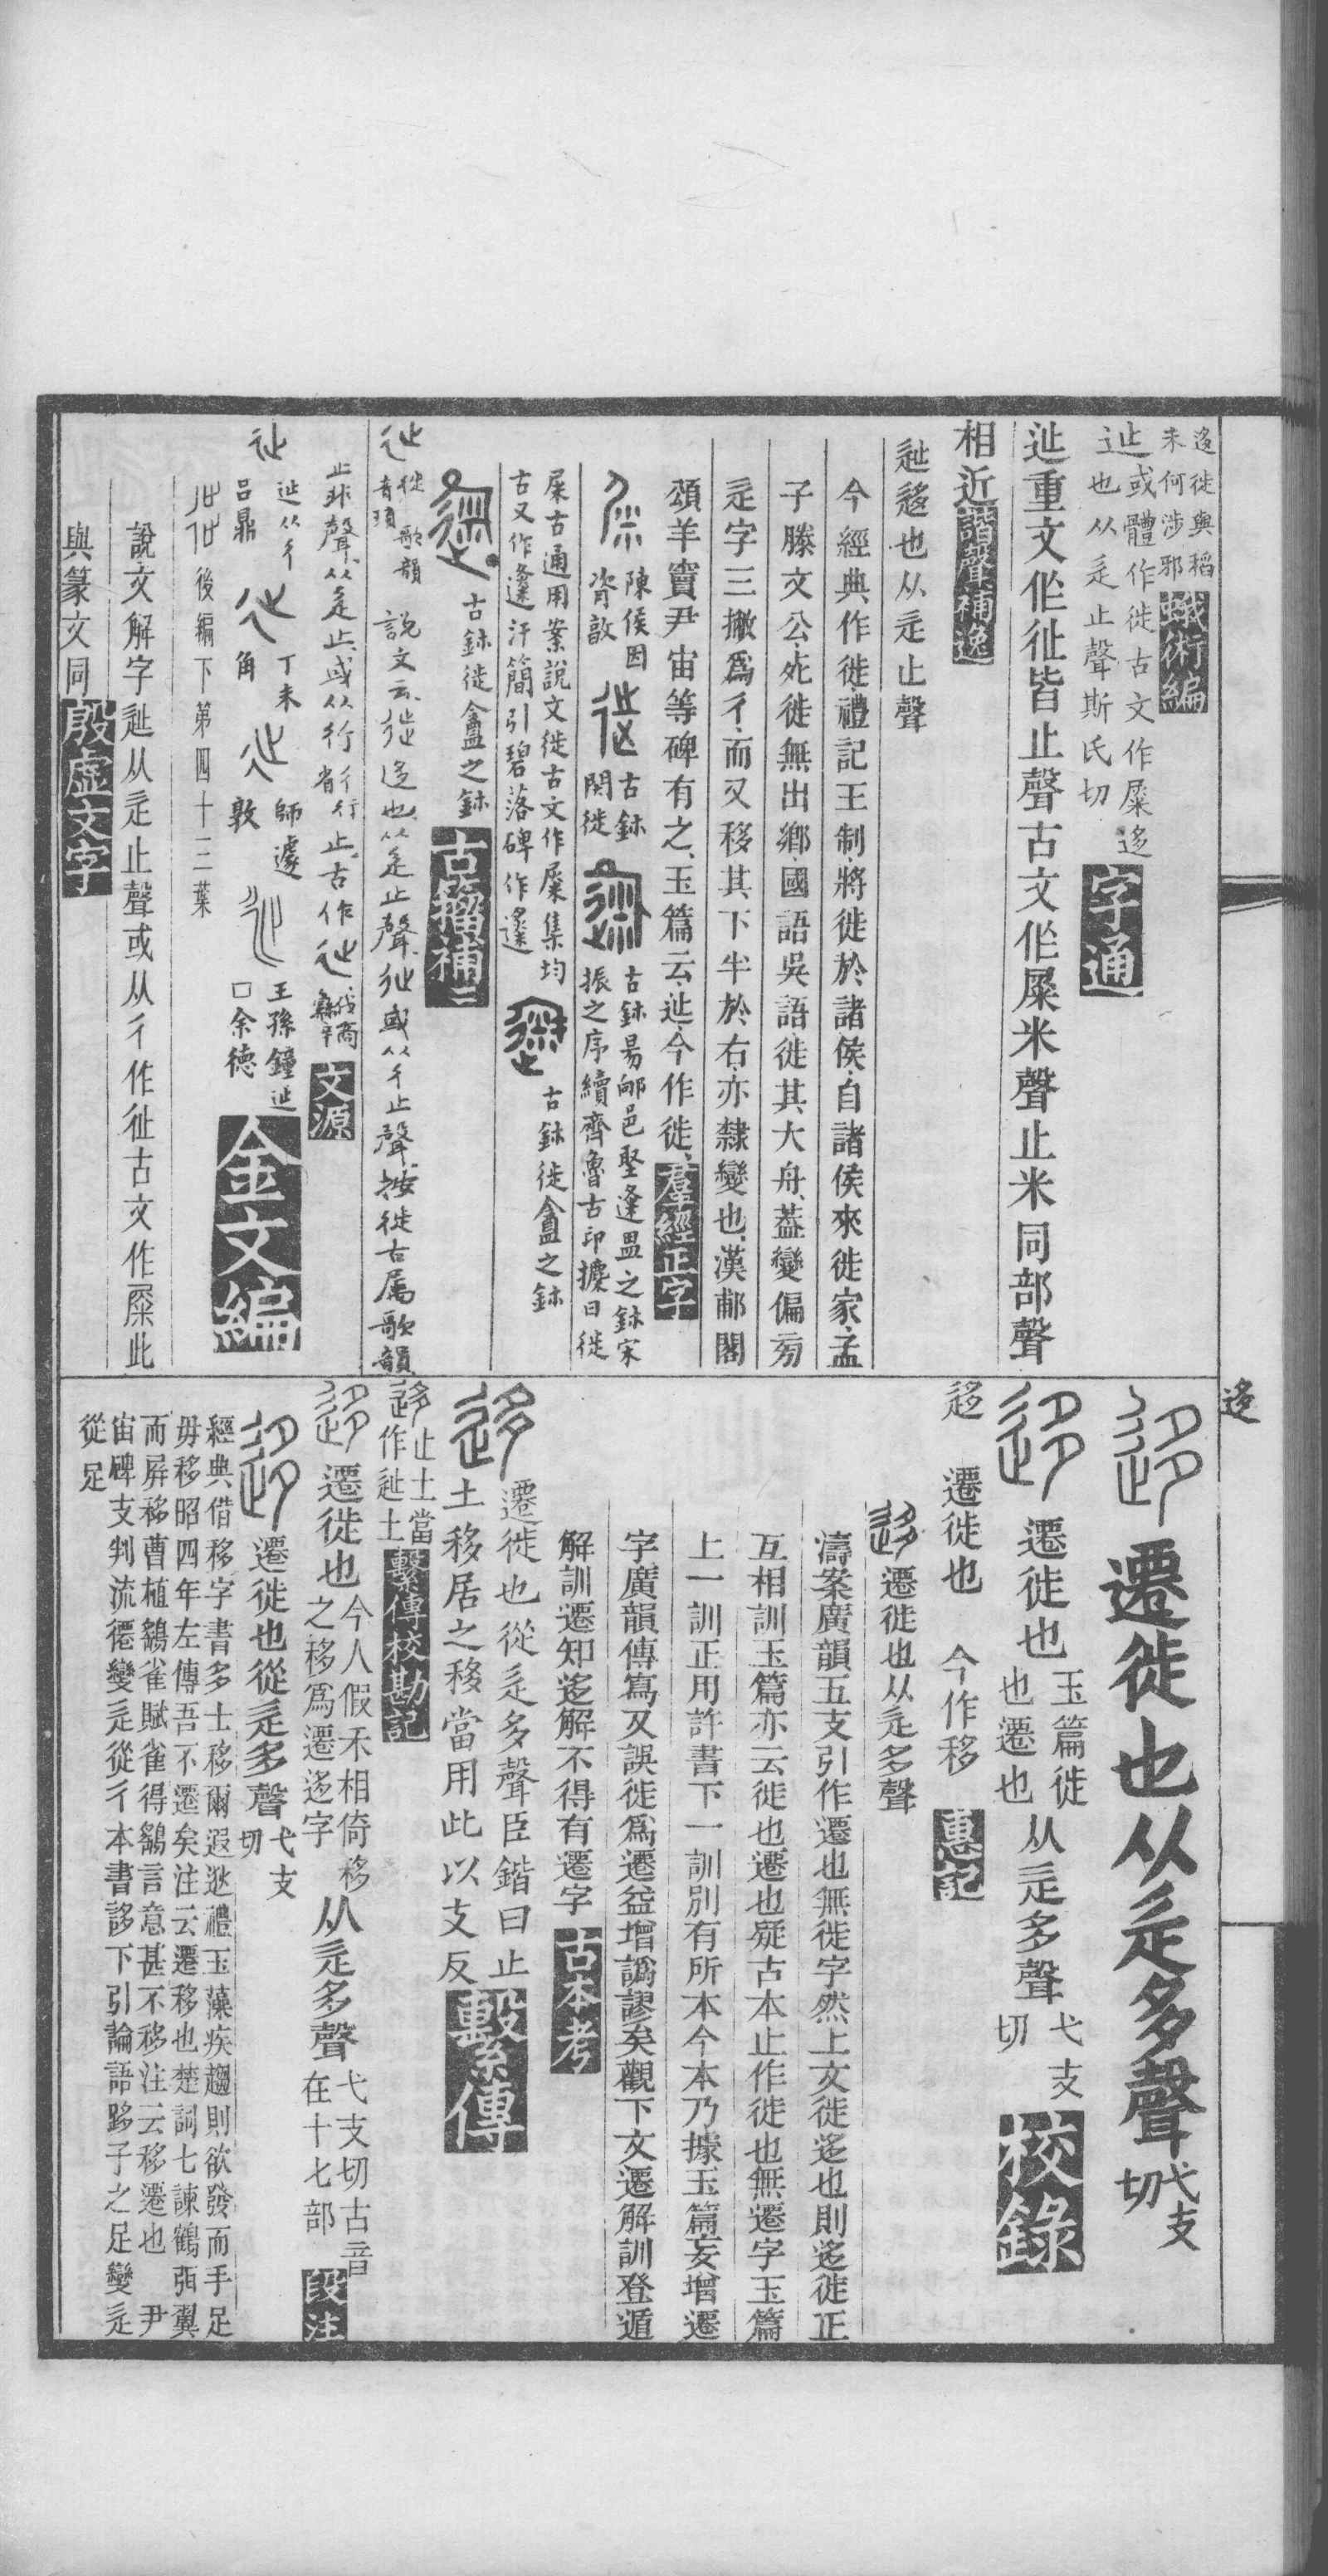 迻徙與稻
未何涉邪蛾術編
𨑭或體作徙古文作𡲴迻
也从辵止聲斯氏切字通
𨑭重文作㣟皆止聲古文作𡲴米聲止米同部聲
相近諧聲補逸
𨑭迻也从辵止聲
今經典作徙禮記王制將徙於諸侯自諸侯來徙家孟
子滕文公死徙無出鄉國語吳語徙其大舟葢變偏㫄
辵字三撇爲彳而又移其下半於右亦隸變也漢郙閣
頌羊竇尹宙等碑有之玉篇云𨑭今作徙羣經正字
陳侯因
㪨敦
古鉨
閔徙
古鉨昜邑聖逢之鉨宋
振之序續齊魯古印攈曰徙
𡲴古通用案說文徙古文作𡲴集均
古又作汗簡引碧落碑作
古鉨徙盦之鉨
古鉨徙盦之鉨古籀補二
㣟徙歌韻
音瑣
說文云徙迻也从辵止聲㣟或从彳止聲按徙古屬歌韻
止非聲从辵止或从行行省行止古作文源
㣟𨑭从彳
呂鼎
丁未
角
師遽
敦
王孫鐘𨑭
口余德金文編
後編下第四十三葉
說文解字𨑭从辵止聲或从彳作㣟古文作𡲴此
與篆文同殷虛文字
迻
迻遷徙也从辵多聲弋支
切
迻遷徙也玉篇徙
也遷也从辵多聲弋支
切校錄
迻遷徙也今作移惠記
迻遷徙也从辵多聲
濤案廣韻五支引作遷也無徙字然上文徙迻也則迻徙正
互相訓玉篇亦云徙也遷也疑古本止作徙也無遷字玉篇
上一訓正用許書下一訓別有所本今本乃據玉篇妄增遷
字廣韻傳寫又誤徙爲遷益增譌謬矣觀下文遷解訓登遁
解訓遷知迻解不得有遷字古本考
迻遷徙也從辵多聲臣鍇曰止
土移居之移當用此以支反繫傳
迻止土當
作𨑭土繫傳校勘記
迻遷徙也今人假禾相倚移
之移爲遷迻字从辵多聲弋支切古音
在十七部段注
迻遷徙也從辵多聲弋支
切
經典借移字書多士移爾遐逖禮玉藻疾趨則欲發而手足
毋移昭四年左傳吾不遷矣注云遷移也楚詞七諫鶴弭翼
而屏移曹植鷂雀賦雀得鷂言意甚不移注云移遷也尹
宙碑支判流僊變辵從彳本書誃下引論語跢予之足變辵
從足